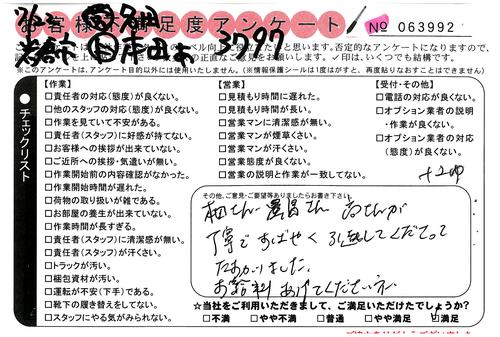 お客様不満足度アンケート
№ 063992
3797
※このアンケートは、アンケート目的以外には使用いたしません。(※情報保護シールは1度がすと、再度貼りなおすことはできません)
チェックリスト
【作業】
□責任者の対応(態度)が良くない。
□他のスタッフの対応(態度)が良くない。
□作業を見ていて不安がある。
□責任者(スタッフ)に好感が持てない。
□お客様への挨拶が出来ていない。
□ご近所への挨拶・気遣いが無い。
□作業開始前の内容確認がなかった。
□作業開始時間が遅れた。
□荷物の取り扱いが雑である。
□お部屋の養生が出来ていない。
□作業時間が長すぎる。
□責任者(スタッフ)に清潔感が無い。
□責任者(スタッフ)が汗くさい。
□トラックが汚い。
□梱包資材が汚い。
□運転が不安(下手)である。
□靴下の履き替えをしてない。
□スタッフにやる気がみられない。
【営業】
□見積もり時間に遅れた。
□見積もり時間が長い。
□営業マンに清潔感が無い。
□営業マンが煙草くさい。
□営業マンが汗くさい。
□営業態度が良くない。
□営業の説明と作業が一致してない。
【受付・その他】
□電話の対応が良くない。
□オプション業者の説明
・作業が良くない。
□オプション業者の対応
(態度)が良くない。
その他、ご意見・ご要望等ありましたらお書き下さい。
丁寧ですばやく引越してくださって
たすかりました。
お給料あげてください
☆当社をご利用いただきまして、ご満足いただけたでしょうか?
□不満 □やや不満 □普通 □やや満足 □満足